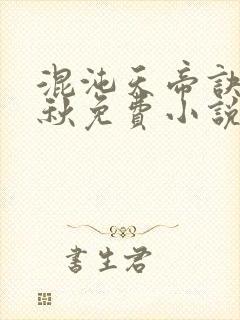 混沌天帝訣
秋免費小說
書生君